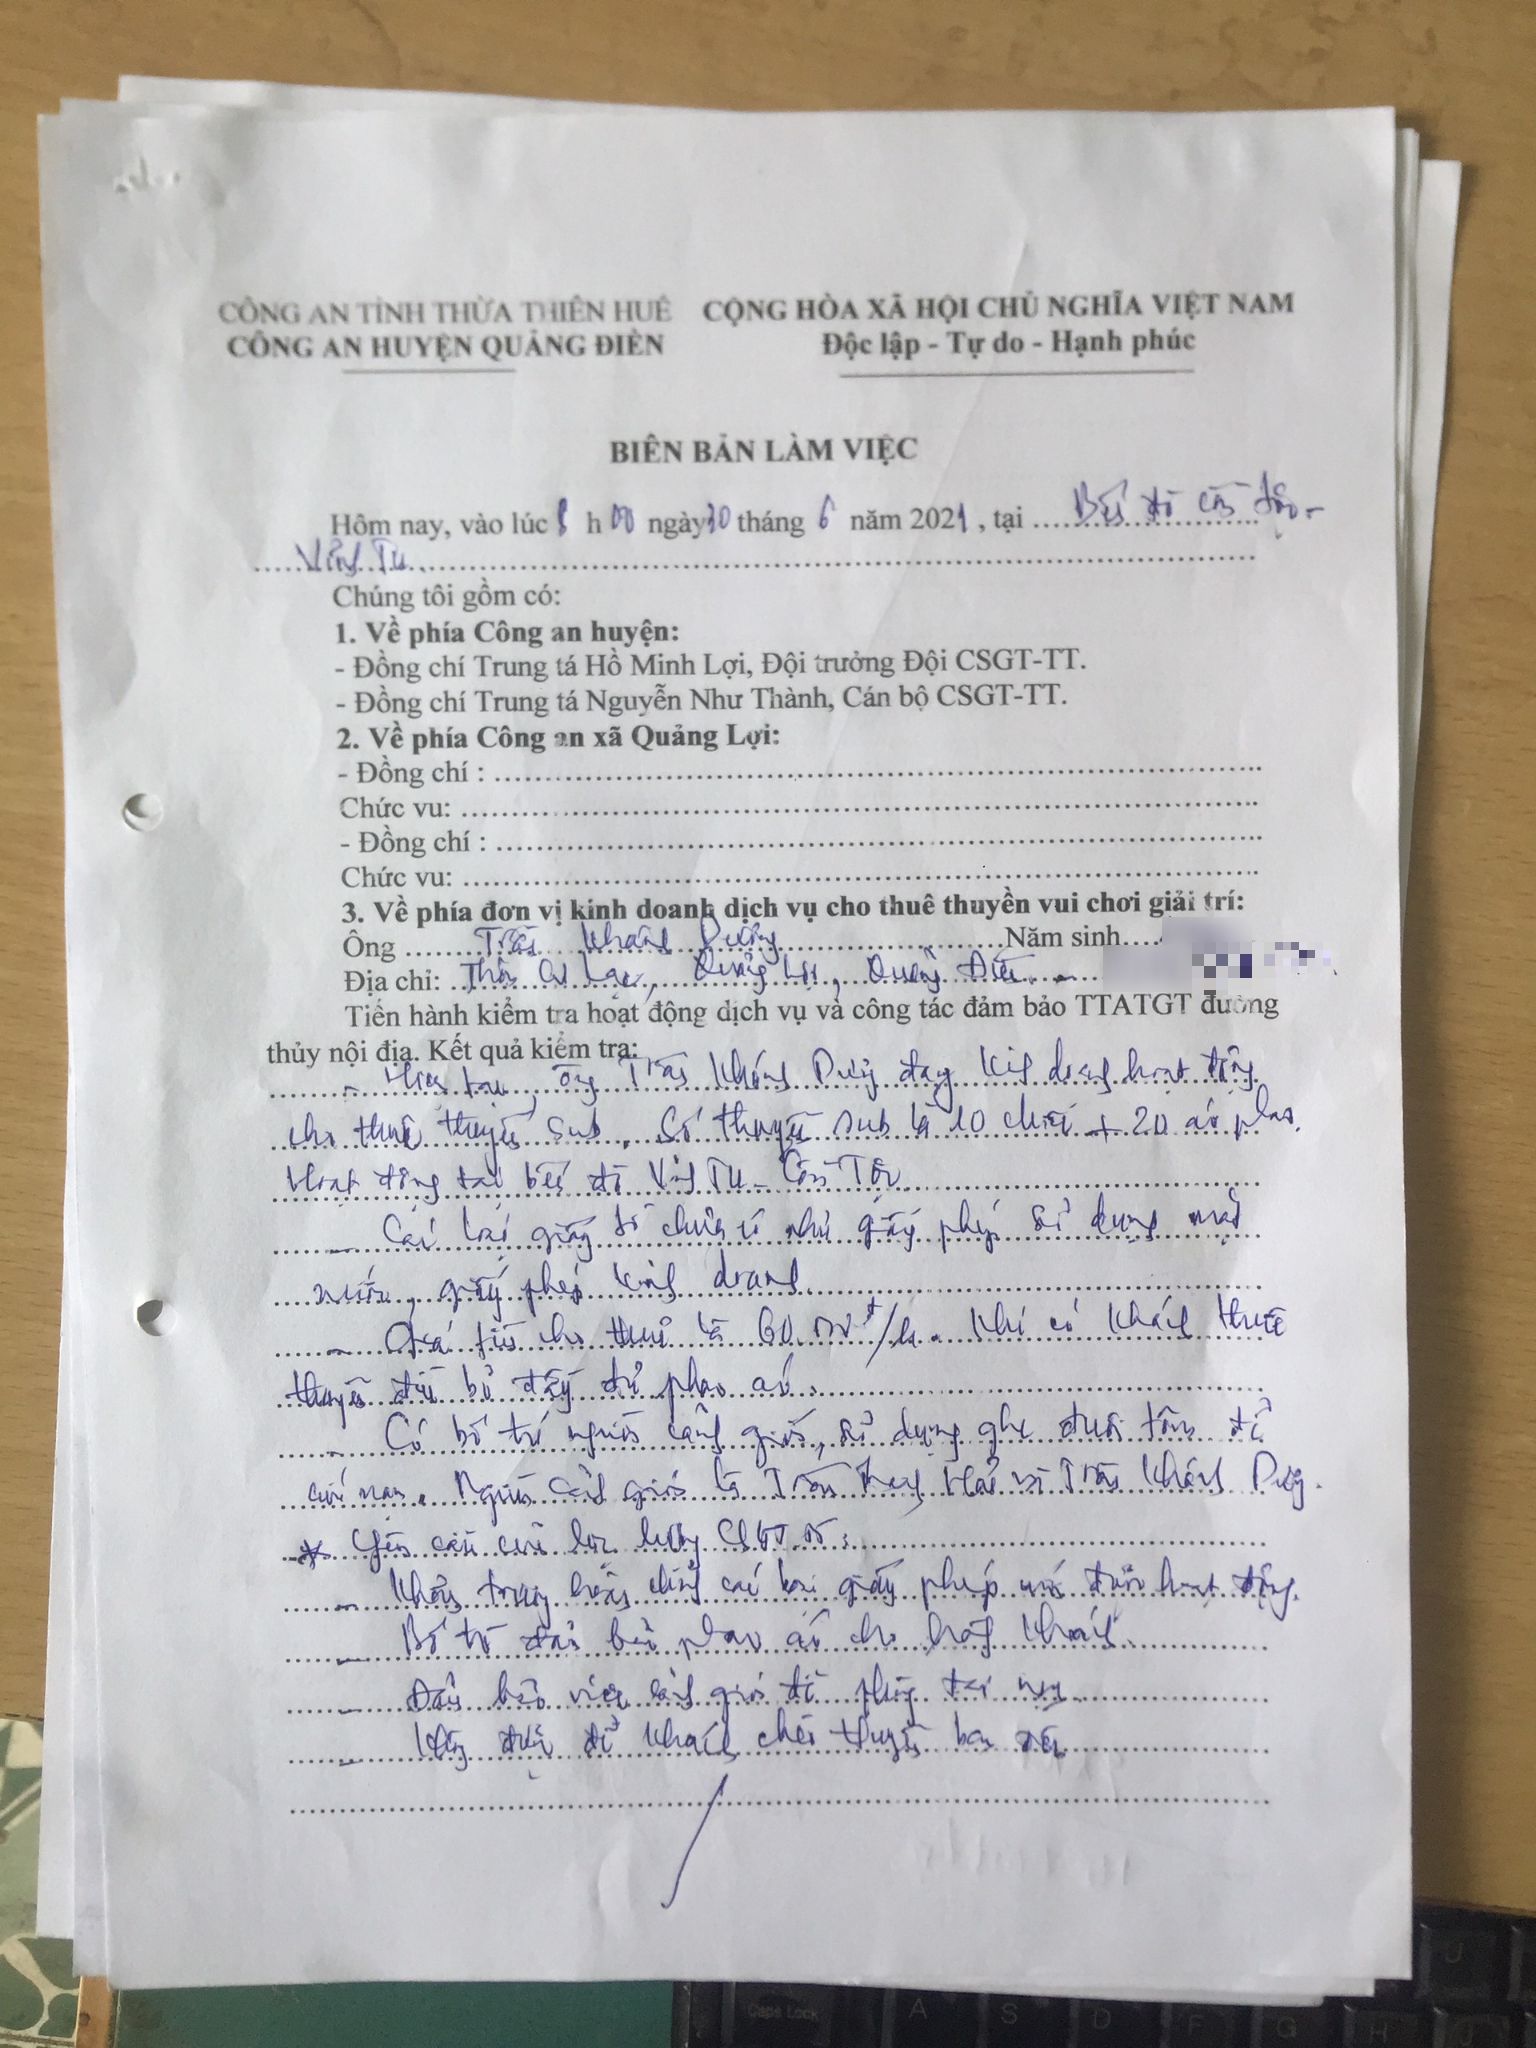 CÔNG AN TỈNH THỪA THIÊN HUẾ CỘNG HÒA XÃ HỘI CHỦ NGHĨA VIỆT NAM
CÔNG AN HUYỆN QUẢNG ĐIỀN Độc lập - Tự do - Hạnh phúc
BIÊN BẢN LÀM VIỆC
Hôm nay, vào lúc 8 h 00 ngày 30 tháng 6 năm 2021, tại Bến đò Cồn Tộc -
Vĩnh Tu
Chúng tôi gồm có:
1. Về phía Công an huyện:
- Đồng chí Trung tá Hồ Minh Lợi, Đội trưởng Đội CSGT-TT.
- Đồng chí Trung tá Nguyễn Như Thành, Cán bộ CSGT-TT.
2. Về phía Công an xã Quảng Lợi:
- Đồng chí :
Chức vu:
- Đồng chí :
Chức vu:
3. Về phía đơn vị kinh doanh dịch vụ cho thuê thuyền vui chơi giải trí:
Ông Trần Khánh Dưỡng Năm sinh
Địa chỉ: Thôn Cư Lạc, Quảng Lợi, Quảng Điền
Tiến hành kiểm tra hoạt động dịch vụ và công tác đảm bảo TTATGT đường
thủy nội địa. Kết quả kiểm tra:
- Hiện tại, ông Trần Khánh Dưỡng đang kinh doanh hoạt động
cho thuê thuyền Sub. Số thuyền sub là 10 chiếc + 20 áo phao.
Hoạt động tại bến đò Vĩnh Tu - Cồn Tộc
- Các loại giấy tờ chưa có như giấy phép sử dụng mặt
nước, giấy phép kinh doanh
- Giá tiền cho thuê là 60.000đ/h. Khi có khách thuê
thuyền đều bố đầy đủ phao áo.
- Có bố trí người cảnh giới, sử dụng ghe đuôi tôm để
cứu nạn. Người cảnh giới là Trần Hải và Trần Khánh Dưỡng.
* Yêu cầu của lực lượng CSGT
- Khẩn trương hoàn chỉnh các loại giấy phép mới được hoạt động.
- Bố trí đảm bảo phao áo cho hành khách.
- Đảm bảo việc cảnh giới đề phòng tai nạn
- Không được để khách chèo thuyền ban đêm